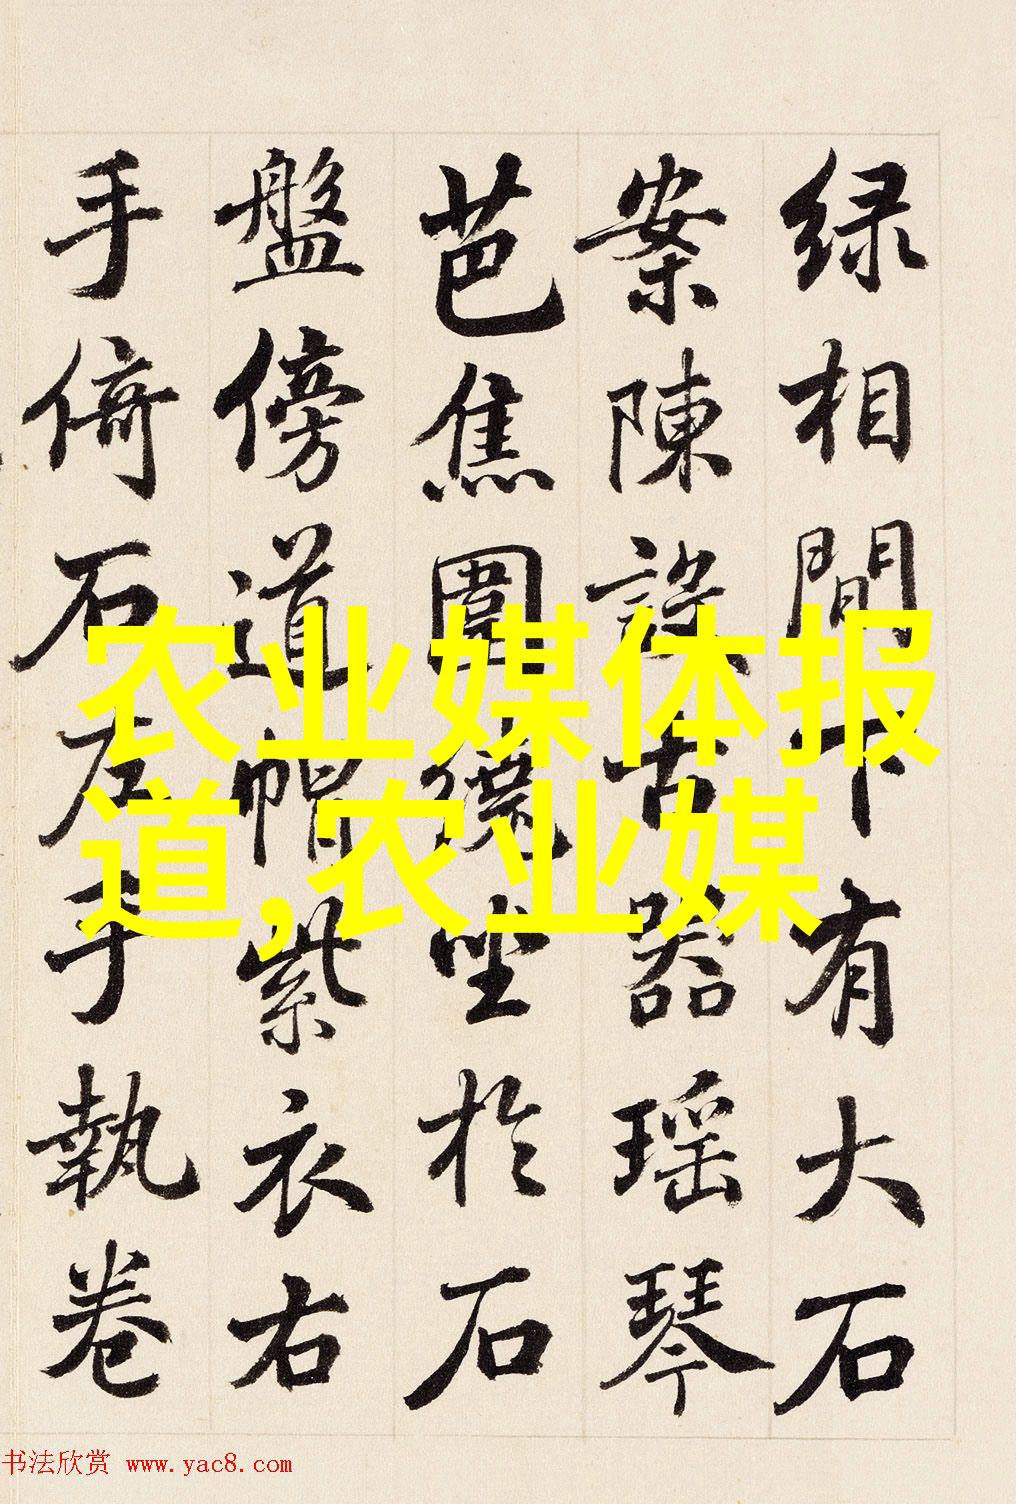 绿相間下有大石
案陳設古器瑶琴
芭焦圍繞坐於石
盤傍道帽紫衣右
手倚石左手執卷
农业媒体报
道,农业媒
书法欣赏 www.yac8.com